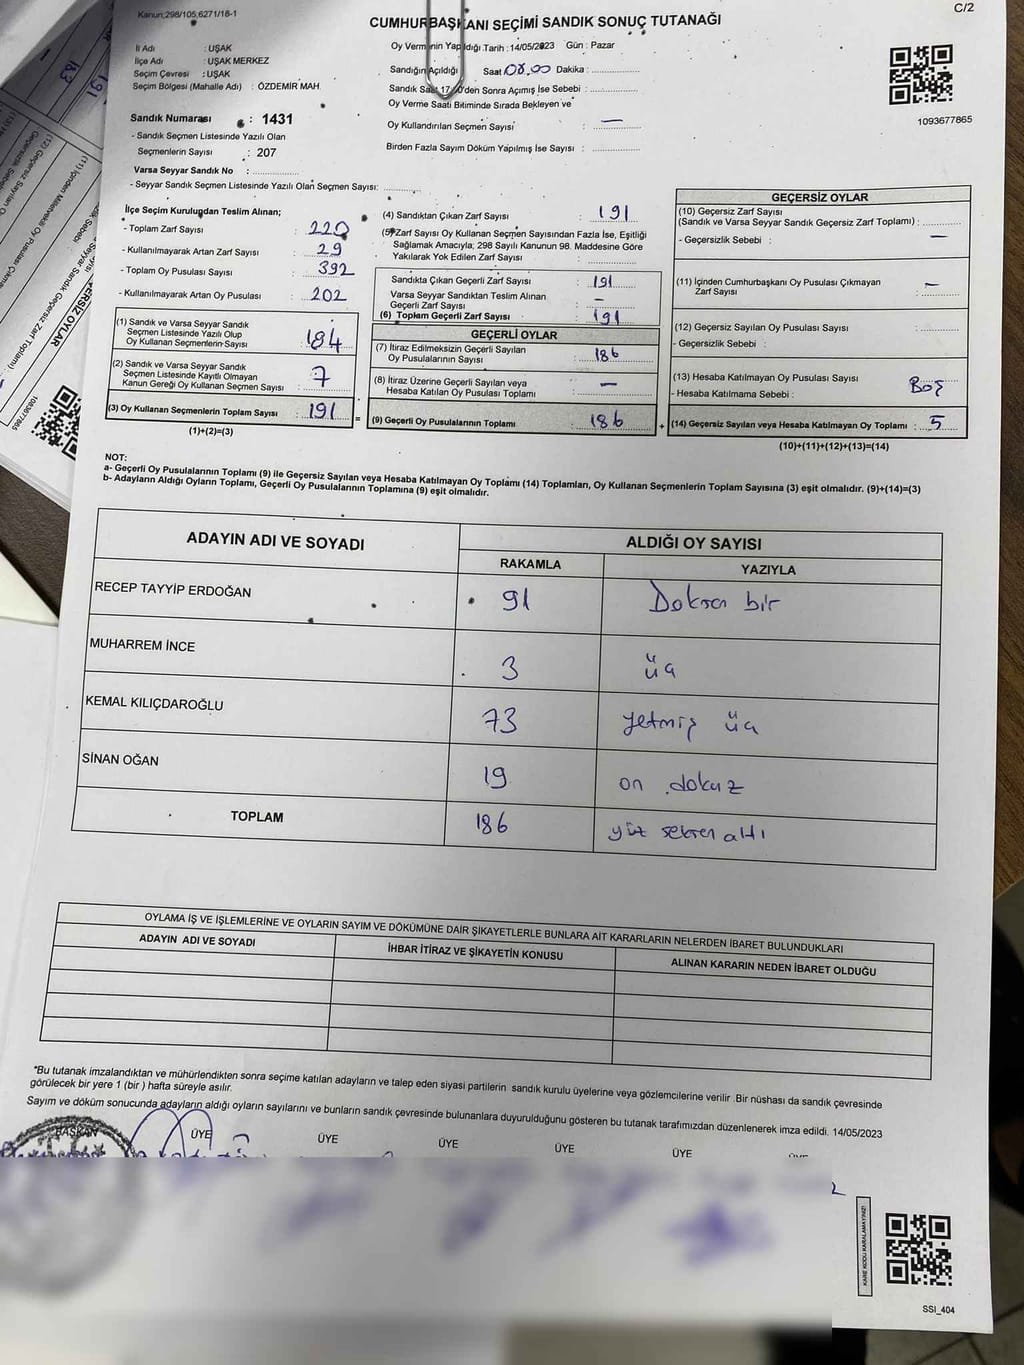 Kanun;298/105,6271/16-1
C/2
CUMHURBAŞKANI SEÇİMİ SANDIK SONUÇ TUTANAĞI
İl Adı : UŞAK
İlçe Adı : UŞAK MERKEZ
Seçim Çevresi : UŞAK
Seçim Bölgesi (Mahalle Adı) : ÖZDEMİR MAH.
Sandık Numarası : 1431
- Sandık Seçmen Listesinde Yazılı Olan
Seçmenlerin Sayısı : 207
Varsa Seyyar Sandık No :
- Seyyar Sandık Seçmen Listesinde Yazılı Olan Seçmen Sayısı:
Oy Vermenin Yapıldığı Tarih : 14/05/2023 Gün : Pazar
Sandığın Açıldığı Saat 08.00 Dakika :
Sandık Saat 17.00'den Sonra Açımış İse Sebebi :
Oy Verme Saati Bitiminde Sırada Bekleyen ve
Oy Kullandırılan Seçmen Sayısı : —
Birden Fazla Sayım Döküm Yapılmış İse Sayısı :
1093677865
İlçe Seçim Kurulundan Teslim Alınan;
- Toplam Zarf Sayısı : 220
- Kullanılmayarak Artan Zarf Sayısı : 29
- Toplam Oy Pusulası Sayısı : 392
- Kullanılmayarak Artan Oy Pusulası : 202
(1) Sandık ve Varsa Seyyar Sandık
Seçmen Listesinde Yazılı Olup
Oy Kullanan Seçmenlerin Sayısı : 184
(2) Sandık ve Varsa Seyyar Sandık
Seçmen Listesinde Kayıtlı Olmayan
Kanun Gereği Oy Kullanan Seçmen Sayısı : 7
(3) Oy Kullanan Seçmenlerin Toplam Sayısı : 191
(1)+(2)=(3)
(4) Sandıktan Çıkan Zarf Sayısı : 191
(5) Zarf Sayısı Oy Kullanan Seçmen Sayısından Fazla İse, Eşitliği
Sağlamak Amacıyla; 298 Sayılı Kanunun 98. Maddesine Göre
Yakılarak Yok Edilen Zarf Sayısı :
Sandıkta Çıkan Geçerli Zarf Sayısı : 191
Varsa Seyyar Sandıktan Teslim Alınan
Geçerli Zarf Sayısı : —
(6) Toplam Geçerli Zarf Sayısı : 191
GEÇERLİ OYLAR
(7) İtiraz Edilmeksizin Geçerli Sayılan
Oy Pusulalarının Sayısı : 186
(8) İtiraz Üzerine Geçerli Sayılan veya
Hesaba Katılan Oy Pusulası Toplamı : —
(9) Geçerli Oy Pusulalarının Toplamı : 186
GEÇERSİZ OYLAR
(10) Geçersiz Zarf Sayısı
(Sandık ve Varsa Seyyar Sandık Geçersiz Zarf Toplamı) :
- Geçersizlik Sebebi : —
(11) İçinden Cumhurbaşkanı Oy Pusulası Çıkmayan
Zarf Sayısı : —
(12) Geçersiz Sayılan Oy Pusulası Sayısı :
- Geçersizlik Sebebi :
(13) Hesaba Katılmayan Oy Pusulası Sayısı :
- Hesaba Katılmama Sebebi : Boş
(14) Geçersiz Sayılan veya Hesaba Katılmayan Oy Toplamı : 5
(10)+(11)+(12)+(13)=(14)
NOT:
a- Geçerli Oy Pusulalarının Toplamı (9) ile Geçersiz Sayılan veya Hesaba Katılmayan Oy Toplamı (14) Toplamları, Oy Kullanan Seçmenlerin Toplam Sayısına (3) eşit olmalıdır. (9)+(14)=(3)
b- Adayların Aldığı Oyların Toplamı, Geçerli Oy Pusulalarının Toplamına (9) eşit olmalıdır.
ADAYIN ADI VE SOYADI
ALDIĞI OY SAYISI
RAKAMLA YAZIYLA
RECEP TAYYİP ERDOĞAN 91 Doksan bir
MUHARREM İNCE 3 üç
KEMAL KILIÇDAROĞLU 73 yetmiş üç
SİNAN OĞAN 19 on dokuz
TOPLAM 186 yüz seksen altı
OYLAMA İŞ VE İŞLEMLERİNE VE OYLARIN SAYIM VE DÖKÜMÜNE DAİR ŞİKAYETLERLE BUNLARA AİT KARARLARIN NELERDEN İBARET BULUNDUKLARI
ADAYIN ADI VE SOYADI İHBAR İTİRAZ VE ŞİKAYETİN KONUSU ALINAN KARARIN NEDEN İBARET OLDUĞU
*Bu tutanak imzalandıktan ve mühürlendikten sonra seçime katılan adayların ve talep eden siyasi partilerin sandık kurulu üyelerine veya gözlemcilerine verilir .Bir nüshası da sandık çevresinde
görülecek bir yere 1 (bir ) hafta süreyle asılır.
Sayım ve döküm sonucunda adayların aldığı oyların sayılarını ve bunların sandık çevresinde bulunanlara duyurulduğunu gösteren bu tutanak tarafımızdan düzenlenerek imza edildi. 14/05/2023
BAŞKAN ÜYE ÜYE ÜYE ÜYE ÜYE
KARE KODU KARALAMAYINIZ!
SSI_404